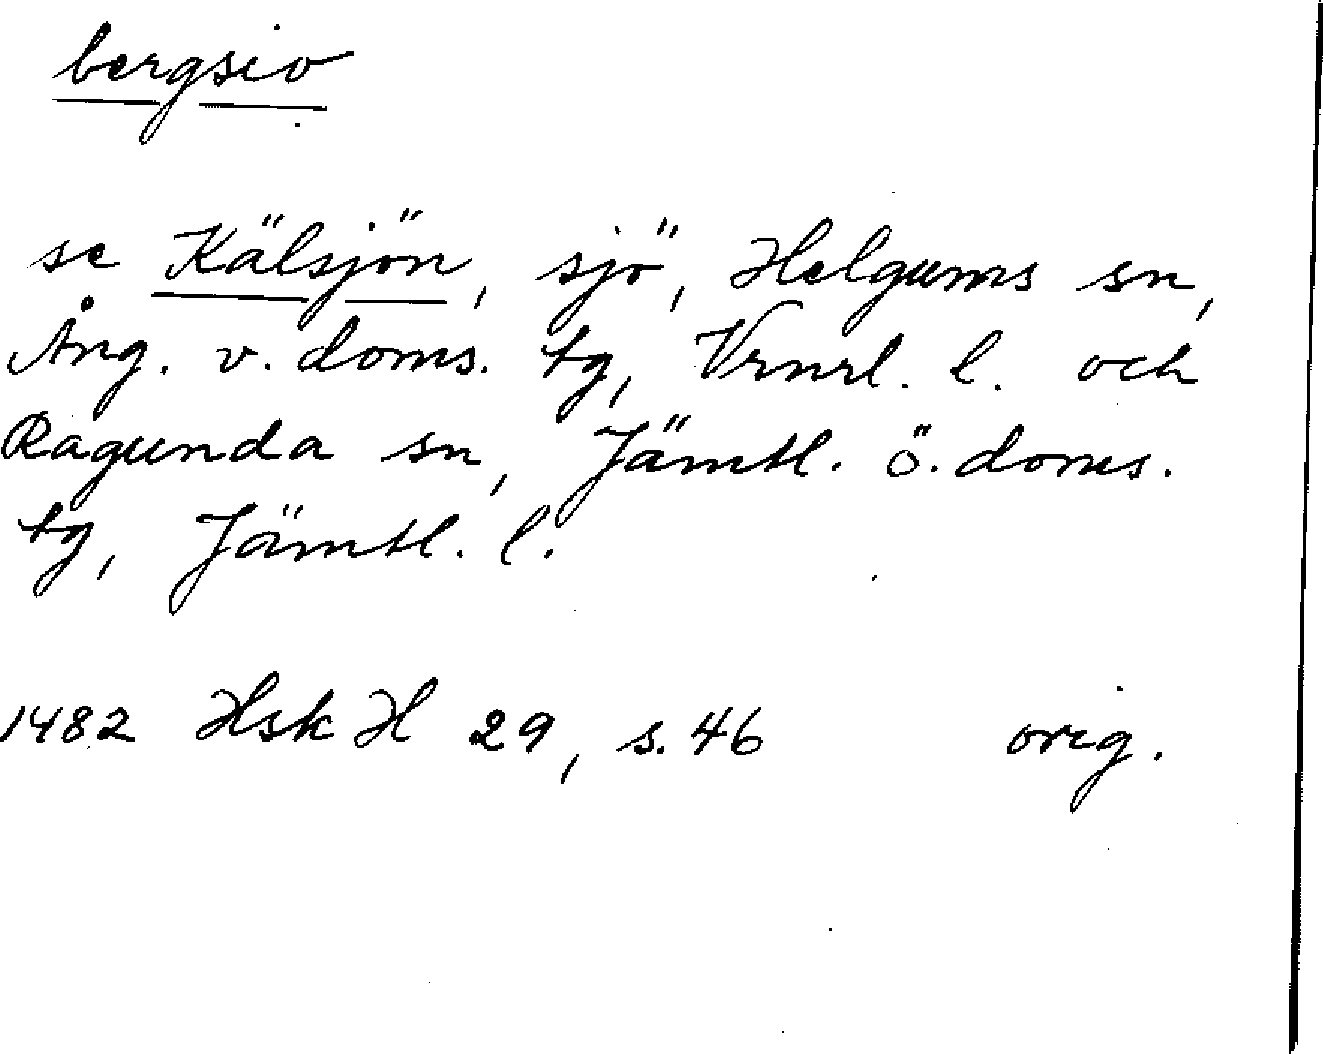 bergsio
se Kälsjön, sjö, Helgums sn,
Ång. v. doms. tg, Vrnrl. l. och
Ragunda sn, Jämtl. ö. doms.
tg, Jämtl. l.
1482 Hsk H 29, s. 46 orig.